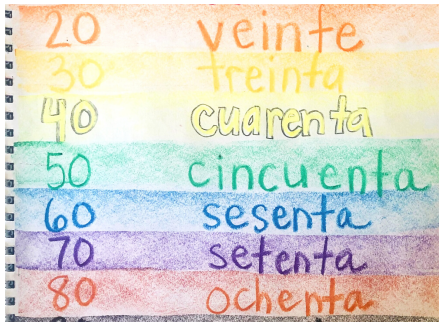 20 veinte
30 treinta
40 cuarenta
50 cincuenta
60 sesenta
70 setenta
80 ochenta